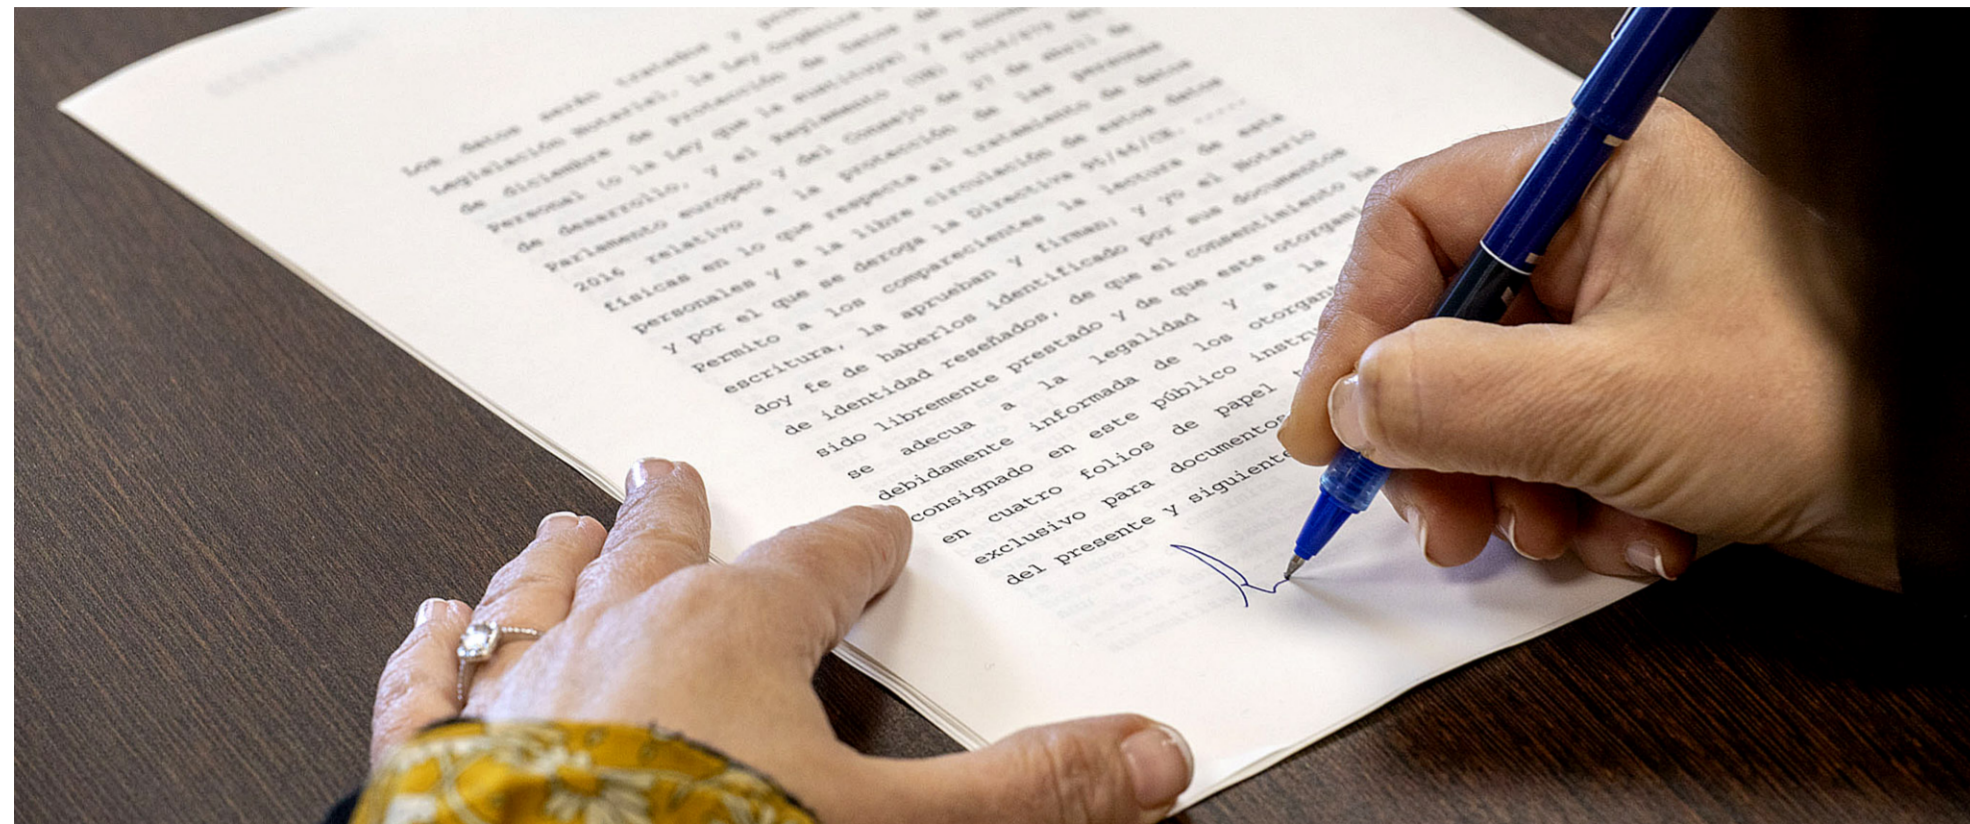 Los datos serán tratados y
Legislación Notarial, la Ley Orgánica
de diciembre de Protección de Datos de
Personal (o la Ley que la sustituya) y su
de desarrollo, y el Reglamento (UE) 2016/679 del
Parlamento europeo y del Consejo de 27 de abril de
2016 relativo a la protección de las personas
físicas en lo que respecta al tratamiento de datos
personales y a la libre circulación de estos datos
y por el que se deroga la Directiva 95/46/CE. ----
Permito a los comparecientes la lectura de esta
escritura, la aprueban y firman; y yo el Notario
doy fe de haberlos identificado por sus documentos
de identidad reseñados, de que el consentimiento ha
sido libremente prestado y de que este otorgam
se adecua a la legalidad y a la
debidamente informada de los otorgan
consignado en este público instru
en cuatro folios de papel
exclusivo para documentos
del presente y siguiente